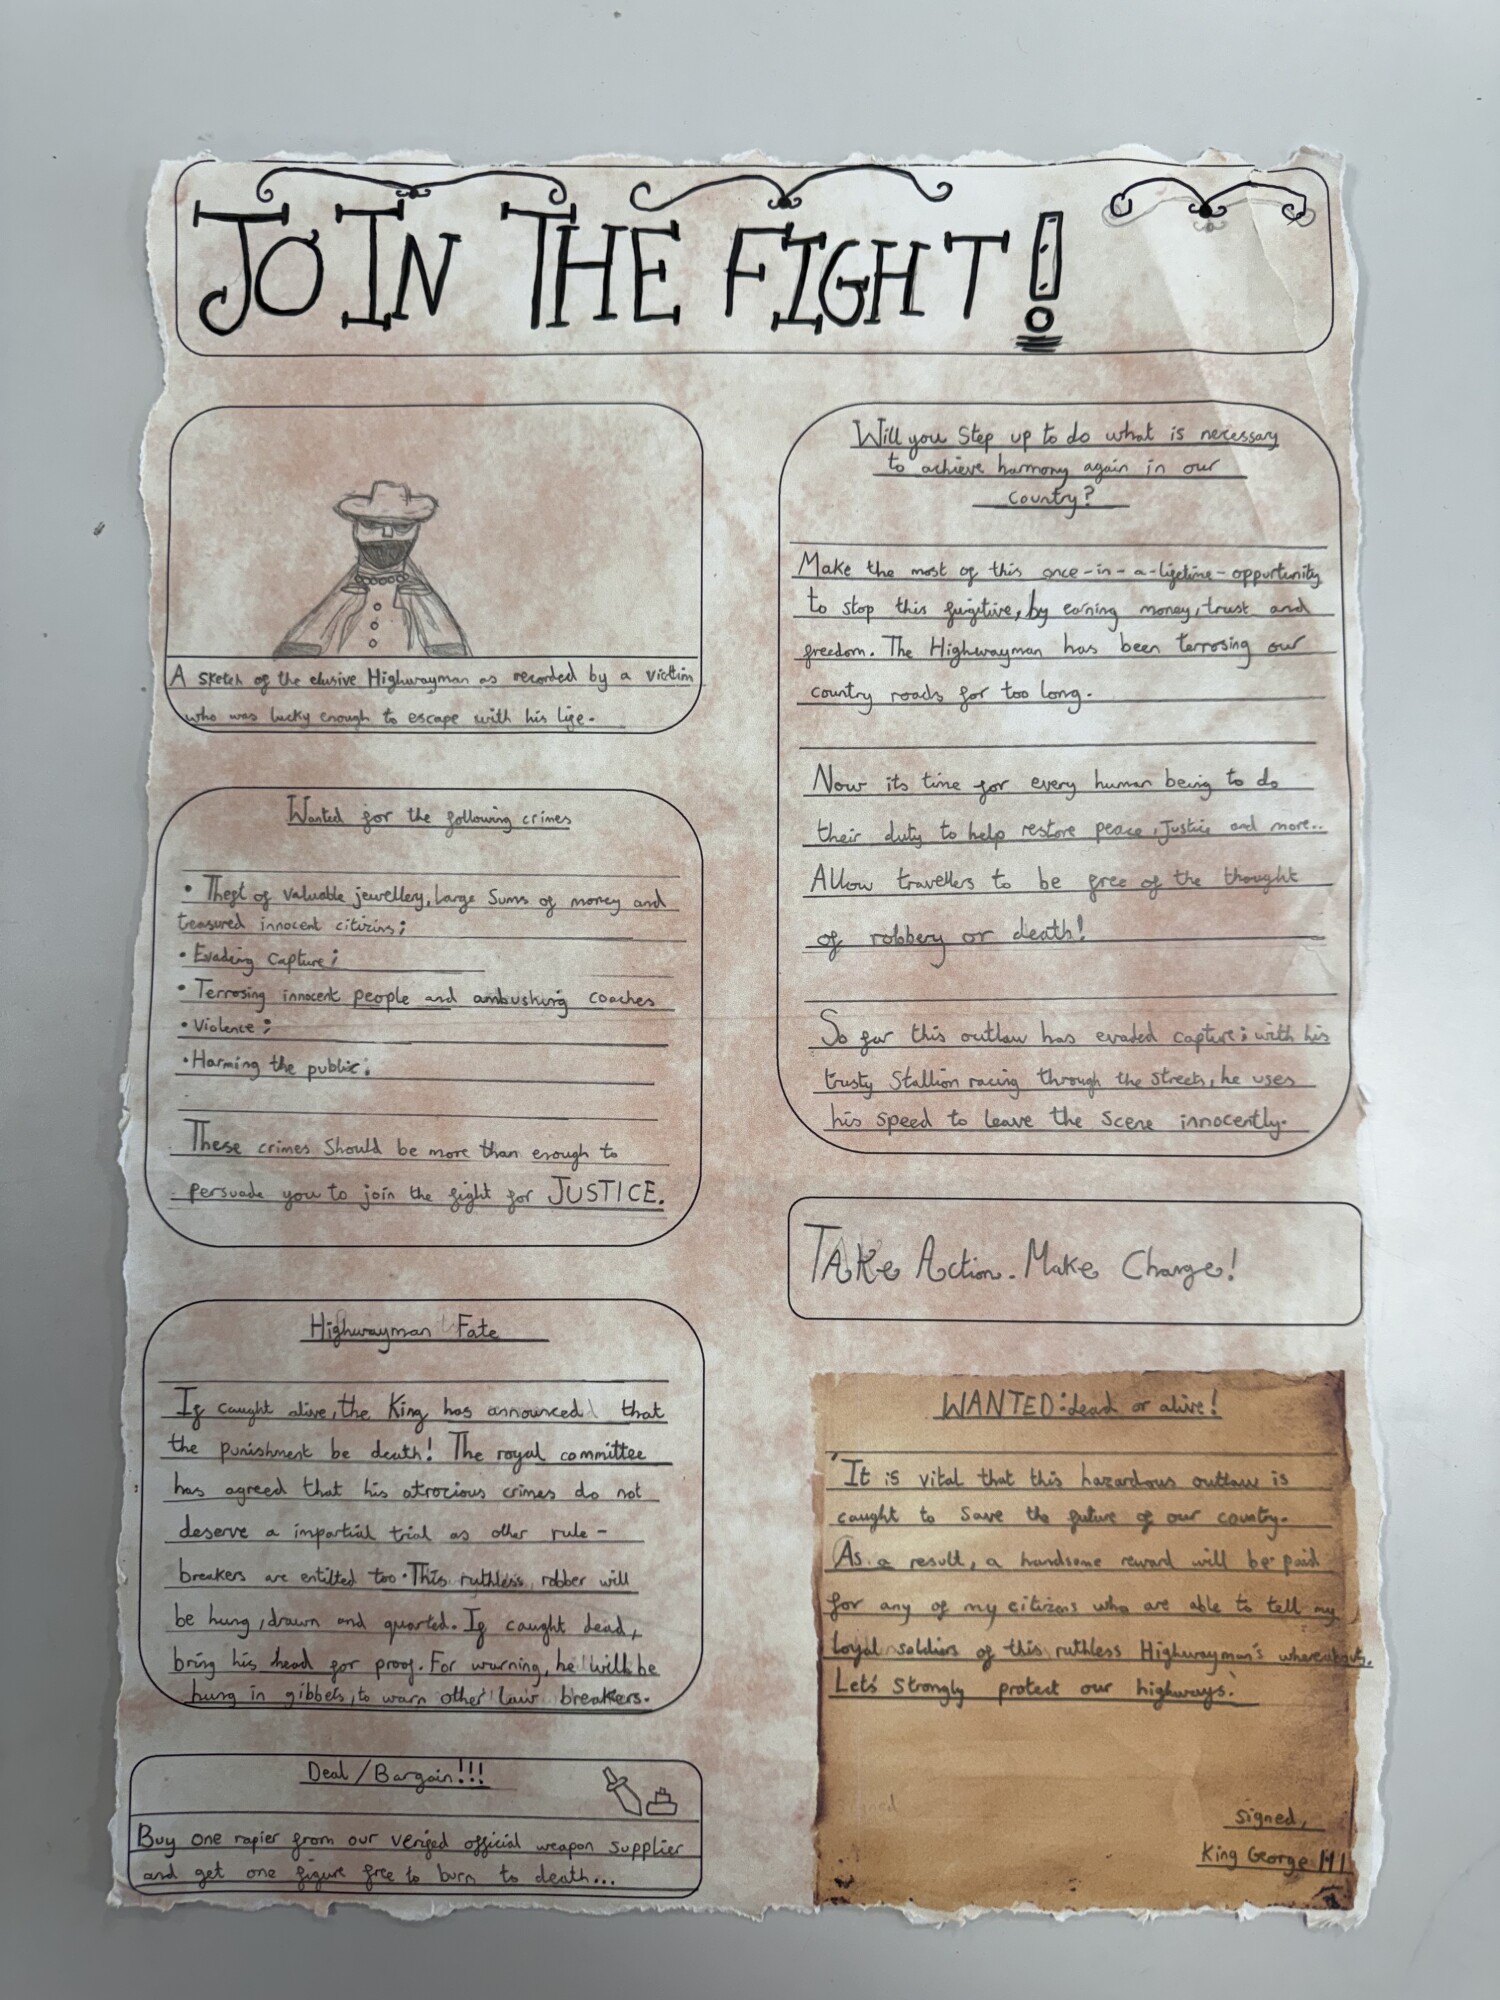 JOIN THE FIGHT!
A sketch of the elusive Highwayman as recorded by a victim
who was lucky enough to escape with his life.
Wanted for the following crimes
• Theft of valuable jewellery, Large Sums of money and
treasured innocent citizins;
• Evading Capture;
• Terrosing innocent people and ambushing coaches
• Violence;
• Harming the public;
These crimes Should be more than enough to
persuade you to join the fight for JUSTICE.
Highwayman Fate
If caught alive, the King has announced that
the punishment be death! The royal committee
has agreed that his atrocious crimes do not
deserve a impartial trial as other rule-
breakers are entilted too. This ruthless robber will
be hung, drawn and quarted. If caught dead,
bring his head for proof. For warning, he will be
hung in gibbets, to warn other law breakers.
Deal/Bargain!!!
Buy one rapier from our verified official weapon supplier
and get one figure free to burn to death...
Will you Step up to do what is necessary
to achieve harmony again in our
country?
Make the most of this once-in-a-lifetime-opportunity
to stop this fugitive, by earning money, trust and
freedom. The Highwayman has been terrosing our
country roads for too long.
Now its time for every human being to do
their duty to help restore peace, Justice and more..
Allow travellers to be free of the thought
of robbery or death!
So far this outlaw has evaded capture; with his
trusty Stallion racing through the streets, he uses
his speed to leave the scene innocently.
Take Action. Make Change!
WANTED: dead or alive!
'It is vital that this hazardous outlaw is
caught to save the future of our country.
As a result, a handsome reward will be paid
for any of my citizens who are able to tell my
loyal soldiers of this ruthless Highwayman's whereabouts.
Let's Strongly protect our highways.'
signed,
King George III